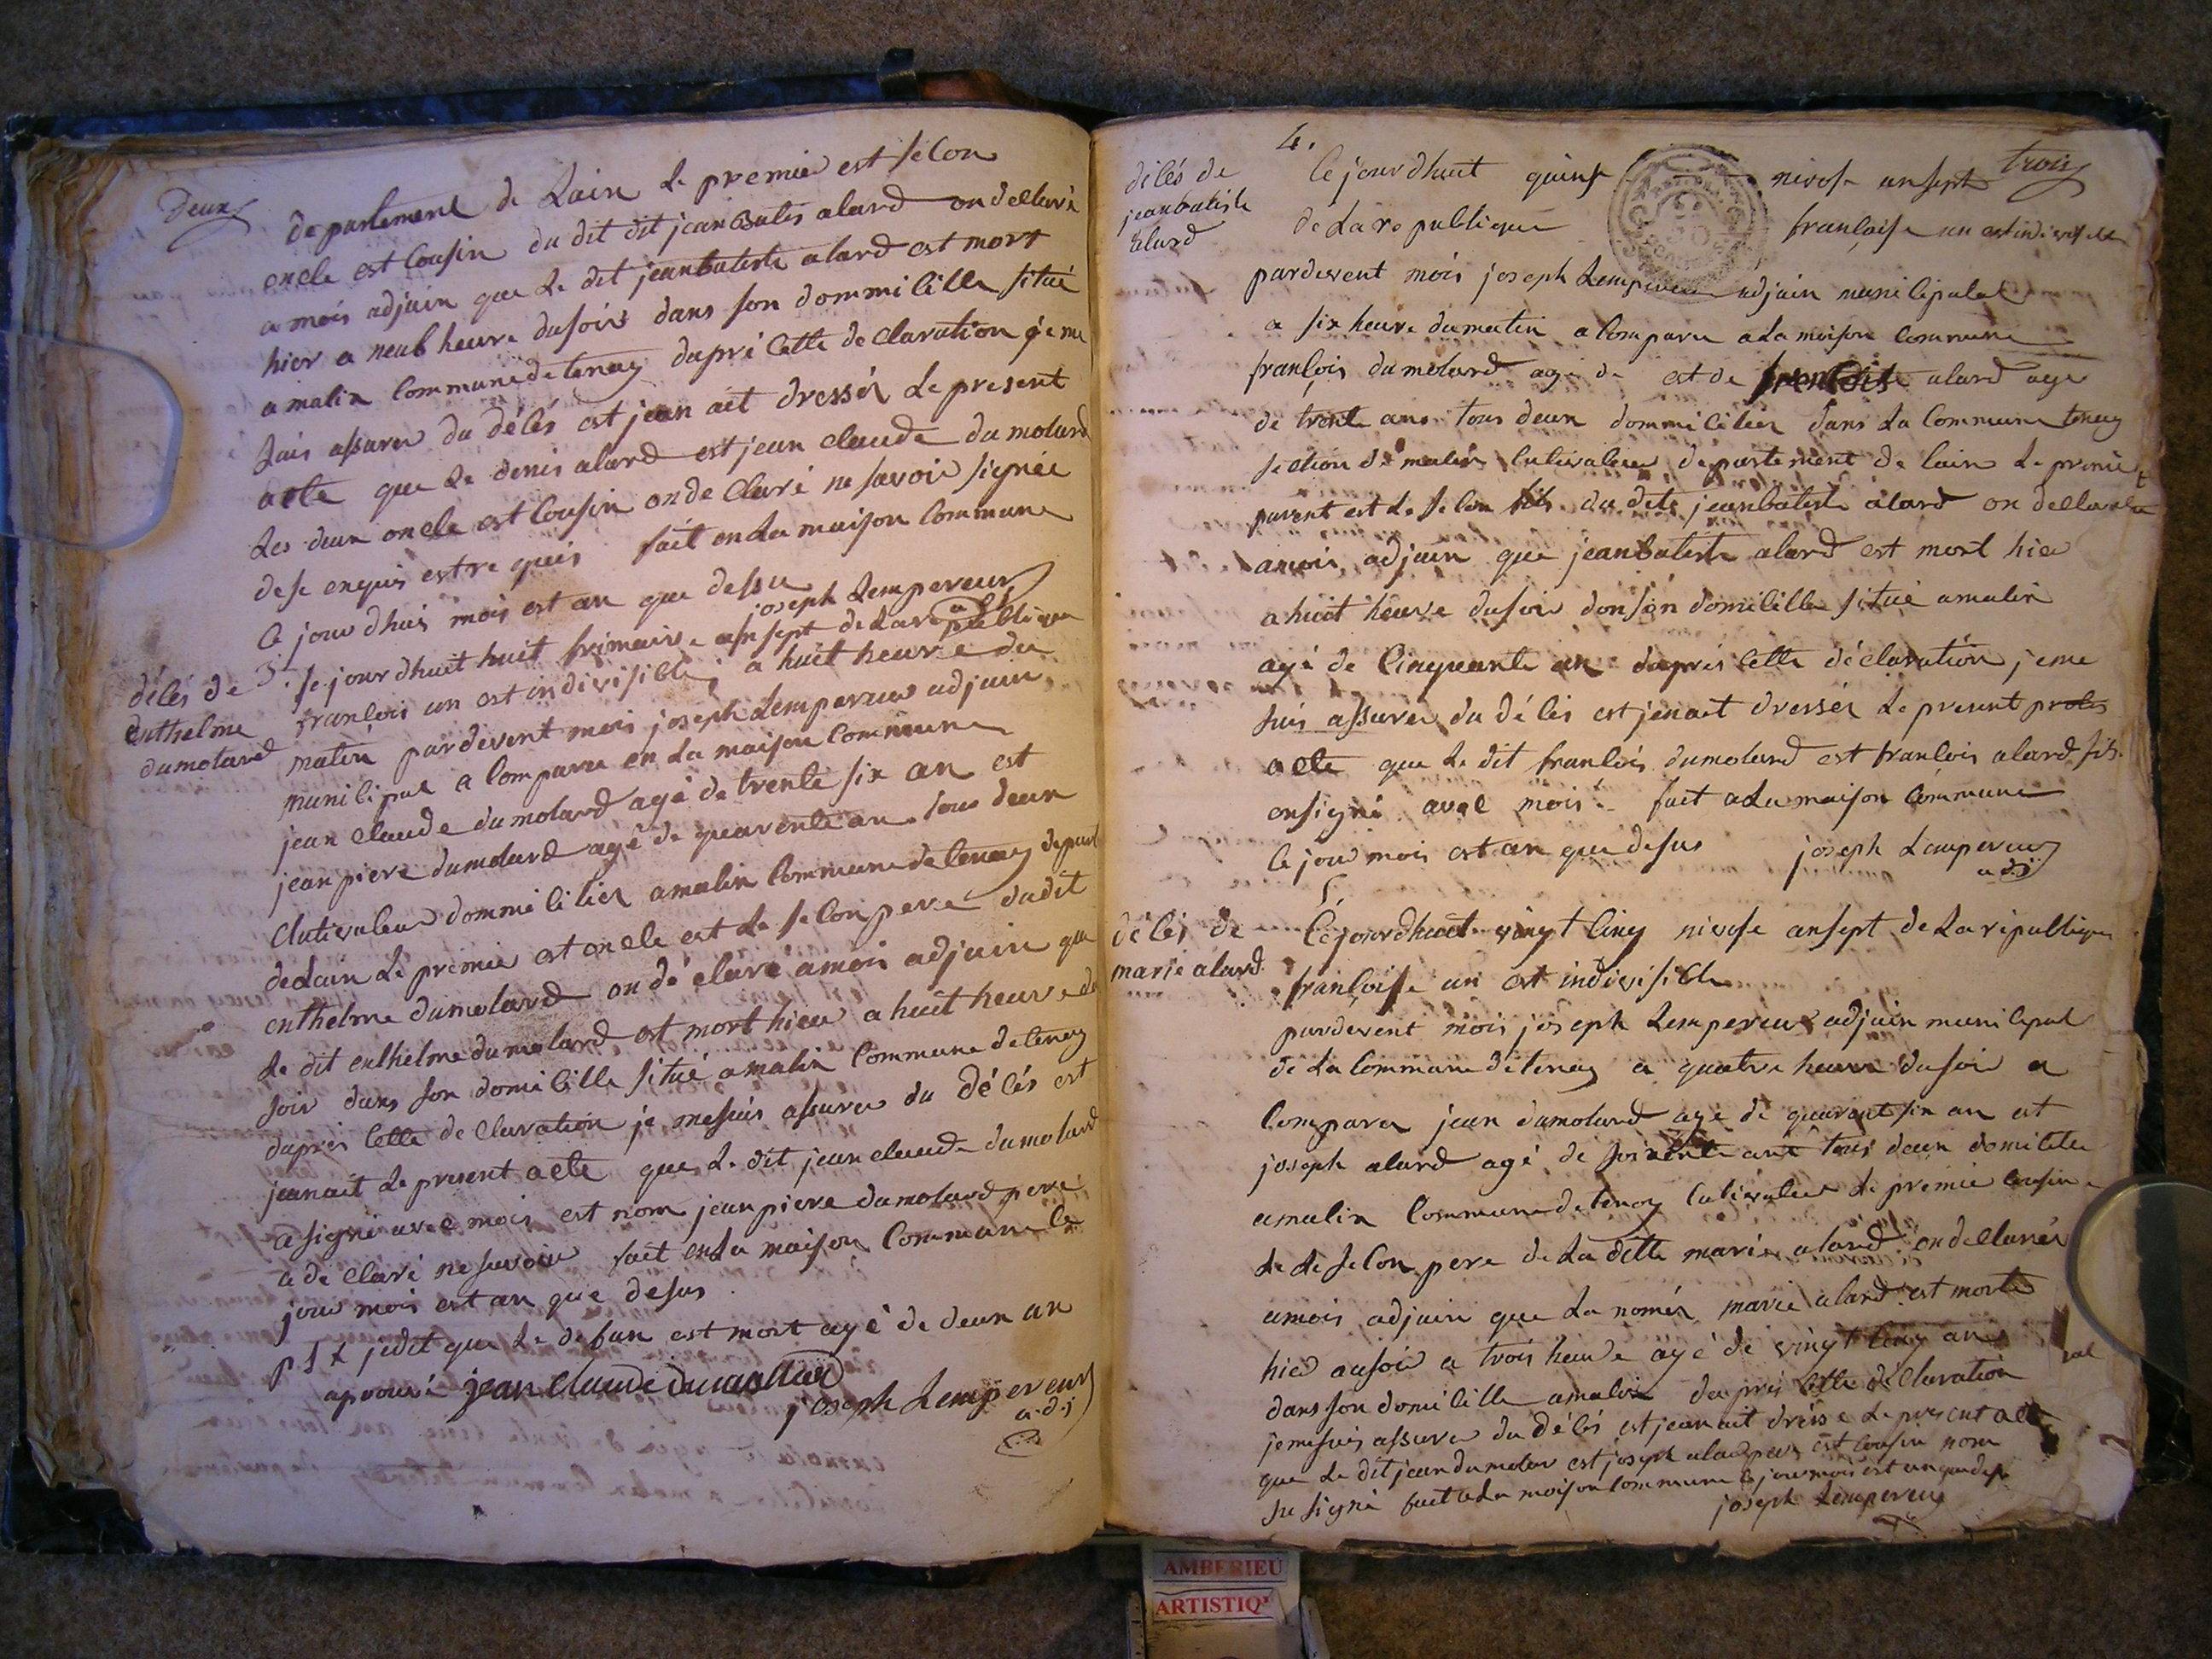 Deux
departement de Lain Le premier est selon
oncle est Cousin du dit dit jean Batis alard on declaré
a mois adjuin que Le dit jeanbatiste alard est mort
hier a neub heure dusoir dans son dommicille situé
a malix Commune detenay dapré cette declaration je me
suis assurer du décés est jean ait dressér Le present
acte que Le denis alard est jean claude dumolard
Les deux oncle est Cousin on de Claré ne savoir signée
dese enquis estre quis fait en La maison Commune
Ce jour dhuis mois est an que dessu
joseph Lempereur
adj
décés de
enthelme
dumolard
3. se jourdhuit huit frimaire ansept de Larepublique
francois un est indivisible, a huit heure du
matin pardevent mois joseph Lempereur adjuin
municipal a Comparu en La maison Commune
jean Claude dumolard agé de trente six an est
jean piere dumolard agé de quarente an tous deux
Cutivateur dommicilier a malix Commune detenay depart
deLain Le premié est oncle est Le seCon pere dudit
enthelme dumolard on dé claré amois adjuin que
Le dit enthelme dumolard est mort hier a huit heure de
soir dans son domicille situé amalix Commune detenay
dapres Cette de Claration je mesuis assurer du décés est
jeanait Le present acte que Le dit jean claude dumolard
a signé avec mois est nom jean piere dumolard pere
a dé claré ne savoir fait enLa maison Commune le
jour mois est an que desus
jedit que Le defun est mort agé de deux an
aprouvé jean claude dumollard
joseph Lempereur
a.d.j
trois
décés de
jeanbatiste
alard
4.
Cejourdhuit quinse nivose ansept
de La republique francaise un est indivisible
pardevent mois joseph Lempereur adjuin municipalal
a six heure dumatin a Comparu a La maison Commune
francois dumolard agé de est de alard age
de trente ans tous deux dommicilier dans La Commune tenay
section de malix Cutivateur departement de lain Le premié
parent est Le seCon fils du dite jeanbatiste alard on declare
amois adjuin que jeanbatiste alard est mort hier
a huit heure dusoir don son domicille situé amalix
agé de Cinquante an dapres Cette déclaration jeme
suis assurer du décés est jenait dresser Le present
acte que Le dit francois dumolard est francois alard fils
onsigné avec mois fait aLa maison Commune
Ce jour mois est an que desus joseph Lempereur
adj
décés de
marie alard
5.
Cejourdhuit vingt Cinq nivose ansept de La république
francaise un est indivisible
pardevent mois joseph Lempereur adjuin municipal
de La Commune detenay a quatre heure dusoir a
Comparu jean dumolard agé de quarente six an est
joseph alard agé de soixente ans tous deux domicilie
amalix Commune detenay Cutivateur Le premié Cousin
Le Le seCon pere de La ditte marie alard on declarer
amois adjuin que La nomér marie alard est morte
hier ausoir a trois heure agé de vingt Cinq ans
dans son domicille amalix dapres Cette déClaration
jemesuis assurer du décés est jeanait drésse Le present acte
que Le dit jean dumolar est joseph alard pere est Cousin nom
su signé fait a La maison Commune Le jour mois est an que desu
joseph Lempereur
AMBERIEU
ARTISTIQ'